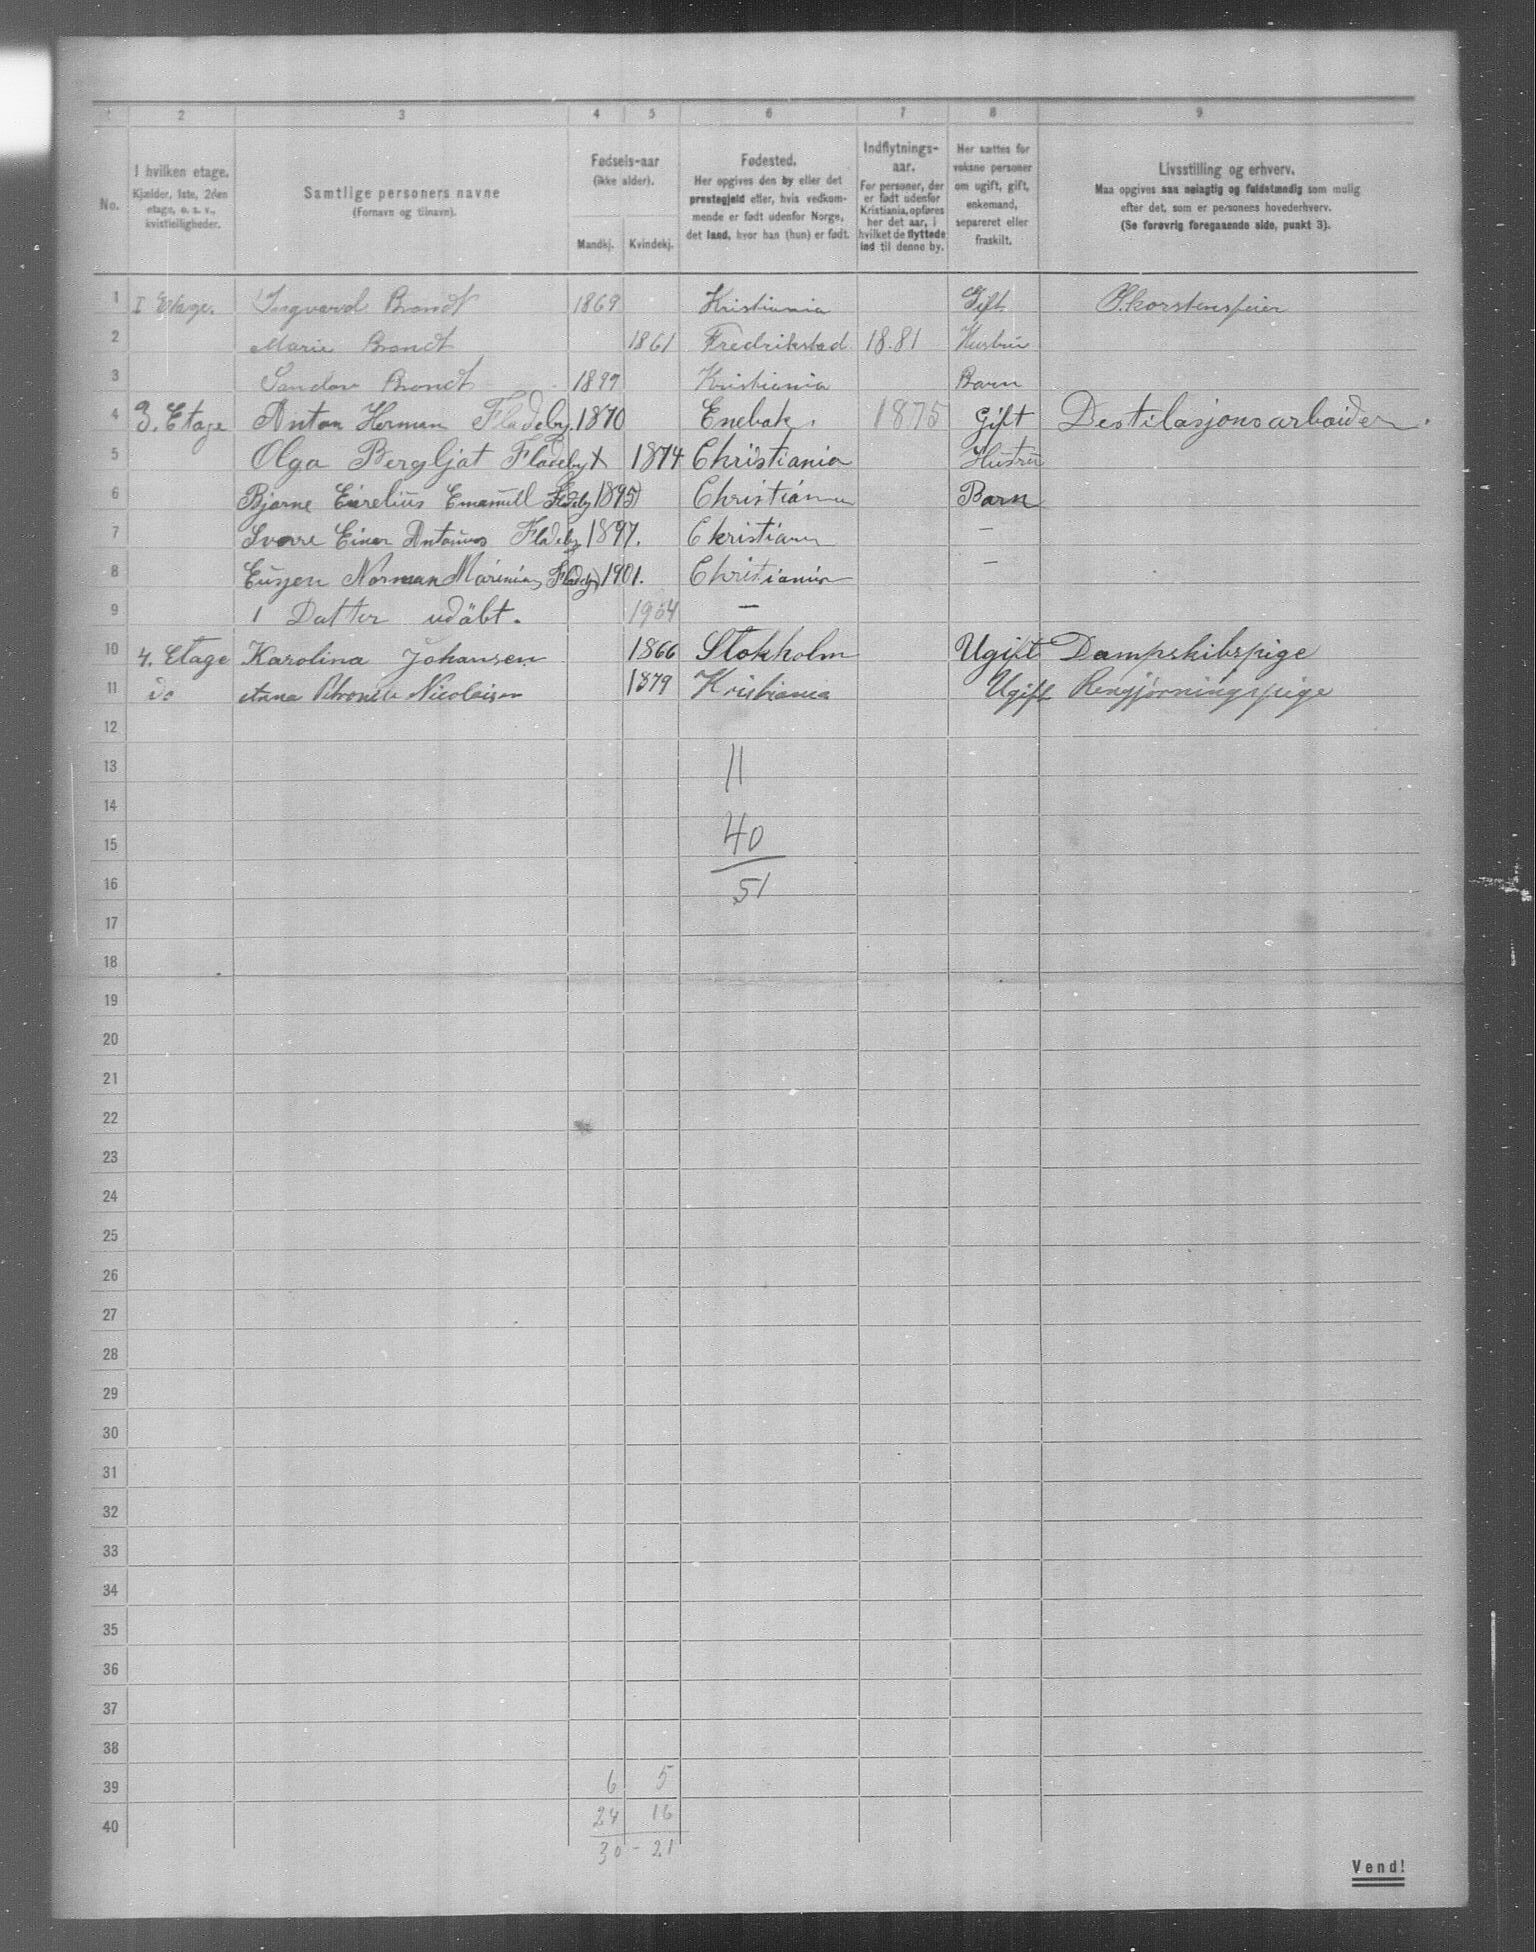 1 2 3 4 5 6 7 8 9
No.
I hvilken etage.
Kjælder, 1ste, 2den
etage, o. s. v.,
kvistleiligheder.
Samtlige personers navne
(Fornavn og tilnavn).
Fødsels-aar
(ikke alder).
Mandkj. Kvindekj.
Fødested.
Her opgives den by eller det
prestegjeld eller, hvis vedkom-
mende er født udenfor Norge,
det land, hvor han (hun) er født.
Indflytnings-
aar.
For personer, der
er født udenfor
Kristiania, opføres
her det aar, i
hvilket de flyttede
ind til denne by.
Her sættes for
voksne personer
om ugift, gift,
enkemand,
separeret eller
fraskilt.
Livsstilling og erhverv.
Maa opgives saa nøiagtig og fuldstændig som mulig
efter det, som er personens hovederhverv.
(Se forøvrig foregaaende side, punkt 3).
1 I Etage. Ingvard Brandt 1869 Kristiania Gift Skorstensfeier
2 Marie Brandt 1861 Fredrikstad 18.81 Hustru
3 Sandor Brandt 1899 Kristiania Barn
4 3. Etage Anton Herman Fladeby. 1870 Enebak. 1875 Gift Destilasjonsarbeider.
5 Olga Bergljat Fladeby X 1874 Christiania Hustrü
6 Bjarne Emanuell Fladeby 1895 Christiania Barn
7 Sverre Einar Antonius Fladeby 1897. Christiania -
8 Eugen Norman Marinius Fladeby 1901. Christiania -
9 1 Datter udöbt. 1904 -
10 4. Etage Karolina Johansen 1866 Stokholm Ugift Dampskibspige
11 do Anna Petronille Nicolaisen 1879 Kristiania Ugift Rengjørningspige
12
13 11
14
15 40
16 51
17
18
19
20
21
22
23
24
25
26
27
28
29
30
31
32
33
34
35
36
37
38
39 6 5
40 24 16
30 - 21
Vend!